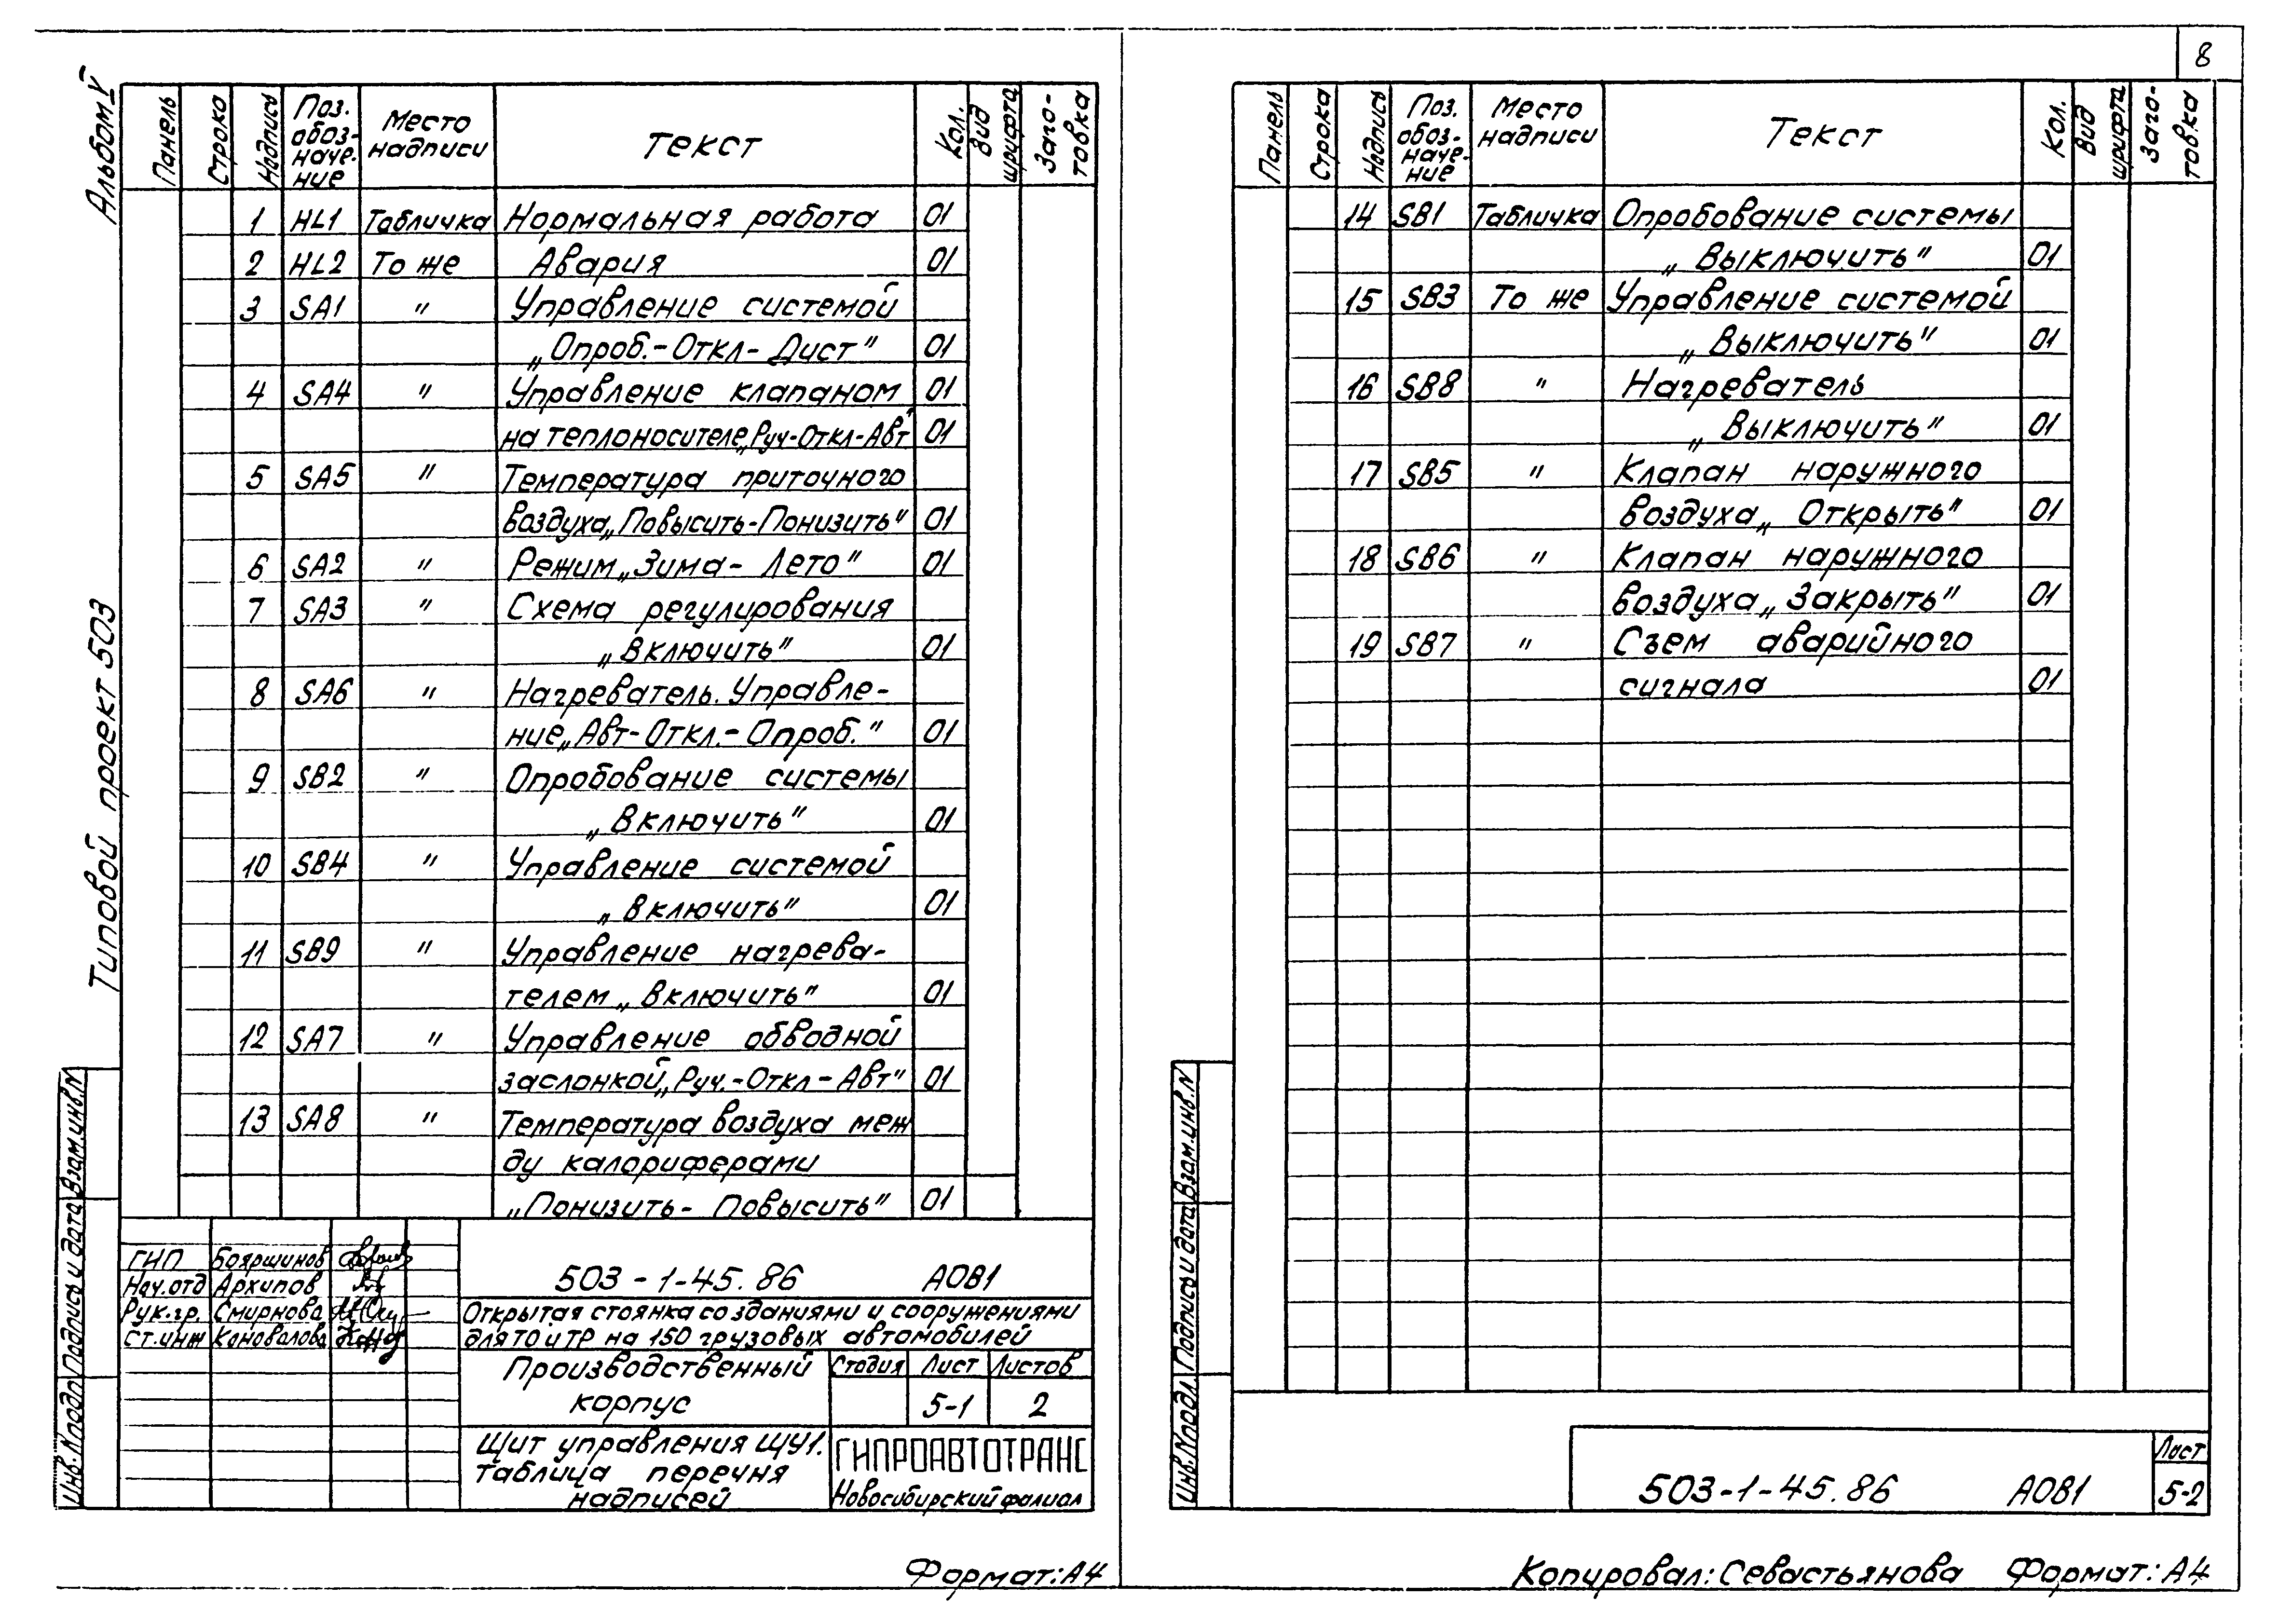 8
Альбом V
Типовой проект 503
Панель Строка Надпись Поз. обоз- наче- ние Место надписи Текст Кол. Вид шрифта Заго- товка
1 HL1 Табличка Нормальная работа 01
2 HL2 То же Авария 01
3 SA1 " Управление системой
„Опроб.-Откл-Дист" 01
4 SA4 " Управление клапаном 01
на теплоносителе„Руч-Откл-Авт" 01
5 SA5 " Температура приточного
воздуха„Повысить-Понизить" 01
6 SA2 " Режим„Зима-Лето" 01
7 SA3 " Схема регулирования
„Включить" 01
8 SA6 " Нагреватель. Управле-
ние„Авт-Откл.-Опроб." 01
9 SB2 " Опробование системы
„Включить" 01
10 SB4 " Управление системой
„Включить" 01
11 SB9 " Управление нагрева-
телем„Включить" 01
12 SA7 " Управление обводной
заслонкой„Руч.-Откл-Авт" 01
13 SA8 " Температура воздуха меж
ду калориферами
„Понизить-Повысить" 01
ГИП Бояршинов
Нач.отд Архипов
Рук.гр. Смирнова
Ст.инж Коновалова
503-1-45.86 АОВ1
Открытая стоянка со зданиями и сооружениями
для ТО и ТР на 150 грузовых автомобилей
Производственный
корпус
Стадия Лист Листов
5-1 2
Щит управления ЩУ1.
Таблица перечня
надписей
ГИПРОАВТОТРАНС
Новосибирский филиал
Инв.Nподл Подпись и дата Взам.инв.N
Формат: А4
Панель Строка Надпись Поз. обоз- наче- ние Место надписи Текст Кол. Вид шрифта Заго- товка
14 SB1 Табличка Опробование системы
„Выключить" 01
15 SB3 То же Управление системой
„Выключить" 01
16 SB8 " Нагреватель
„Выключить" 01
17 SB5 " Клапан наружного
воздуха„Открыть" 01
18 SB6 " Клапан наружного
воздуха„Закрыть" 01
19 SB7 " Съем аварийного
сигнала 01
Инв.Nподл. Подпись и дата Взам.инв.N
503-1-45.86 АОВ1
Лист
5-2
Копировал: Севастьянова Формат: А4